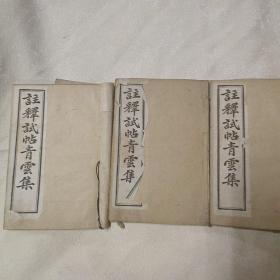 註釋試帖青雲集
註釋試帖青雲集
註釋試帖青雲集